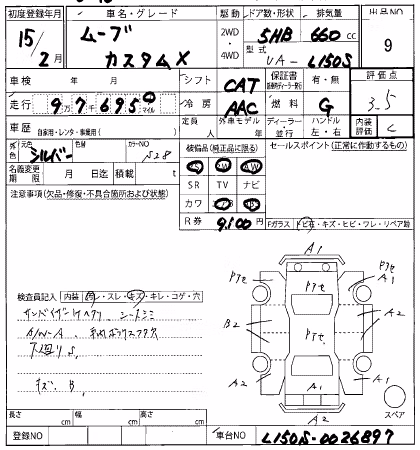 初度登録年月 車名・グレード 駆動 ドア数・形状 排気量 出品NO
15/2月 ムーブ カスタムX 2WD・4WD 5HB 660cc 9
型式 UA-L150S
車検 年 月 シフト CAT 保証書 有・無 評価点
走行 9万7千695 マイル 冷房 AAC 燃料 G 3.5
車歴 自家用・レンタ・事業用( ) 定員 人 外車モデル 年 ディーラー・並行 ハンドル 左・右 内装評価 C
外色 元色 シルバー 色替 カラーNO S28 装備品(純正品に限る) セールスポイント(正常に作動するもの)
名義変更期限 月 日迄 積載 t
PS AW PW
SR TV ナビ
注意事項(欠品・修復・不具合箇所および状態)
カワ
R券 9,100円 Fガラス トビ石・キズ・ヒビ・ワレ・リペア跡
A1
Pアセ Pアセ A1
Pアセ
検査員記入 内装 コゲ・スレ・キズ・キレ・コゲ・穴
B2 Pアセ A2
A/W-A
下廻りS
キズ、B
A2 A1 A2
A2 スペア
長さ cm 幅 cm 高さ cm
登録NO 車台NO L150S-0026897